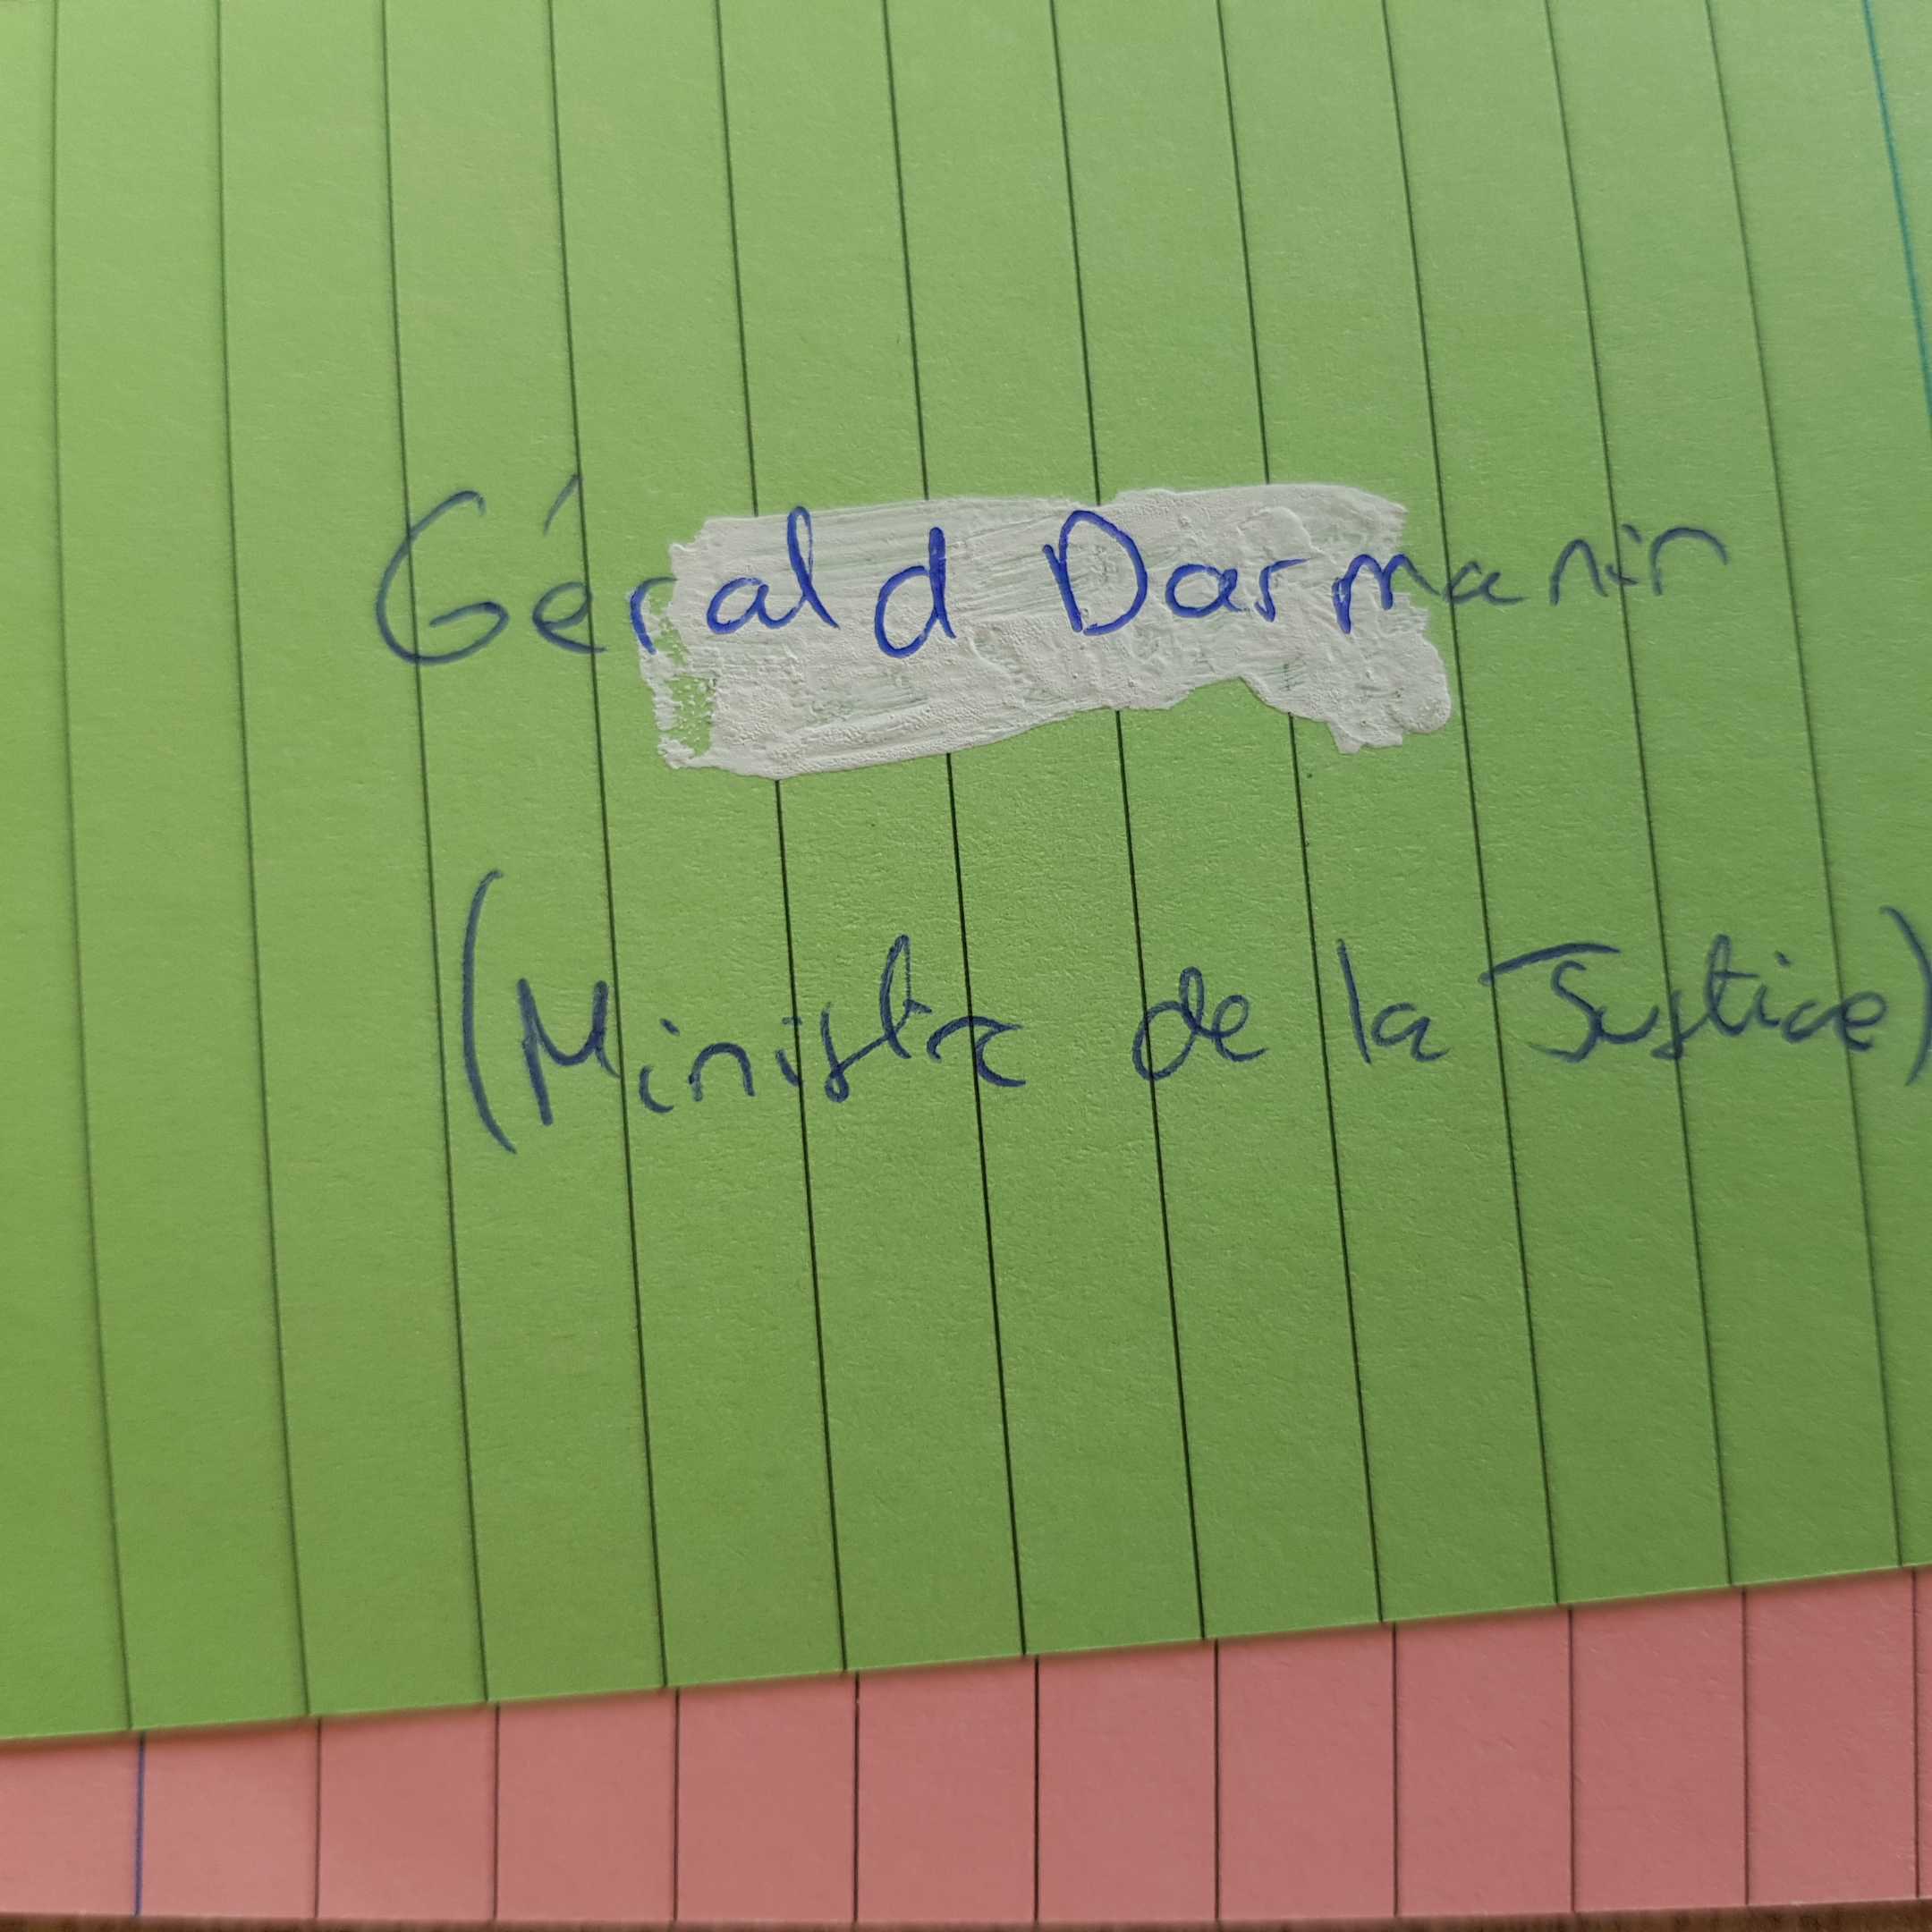 Gérald Darmanin
(Ministre de la Justice)